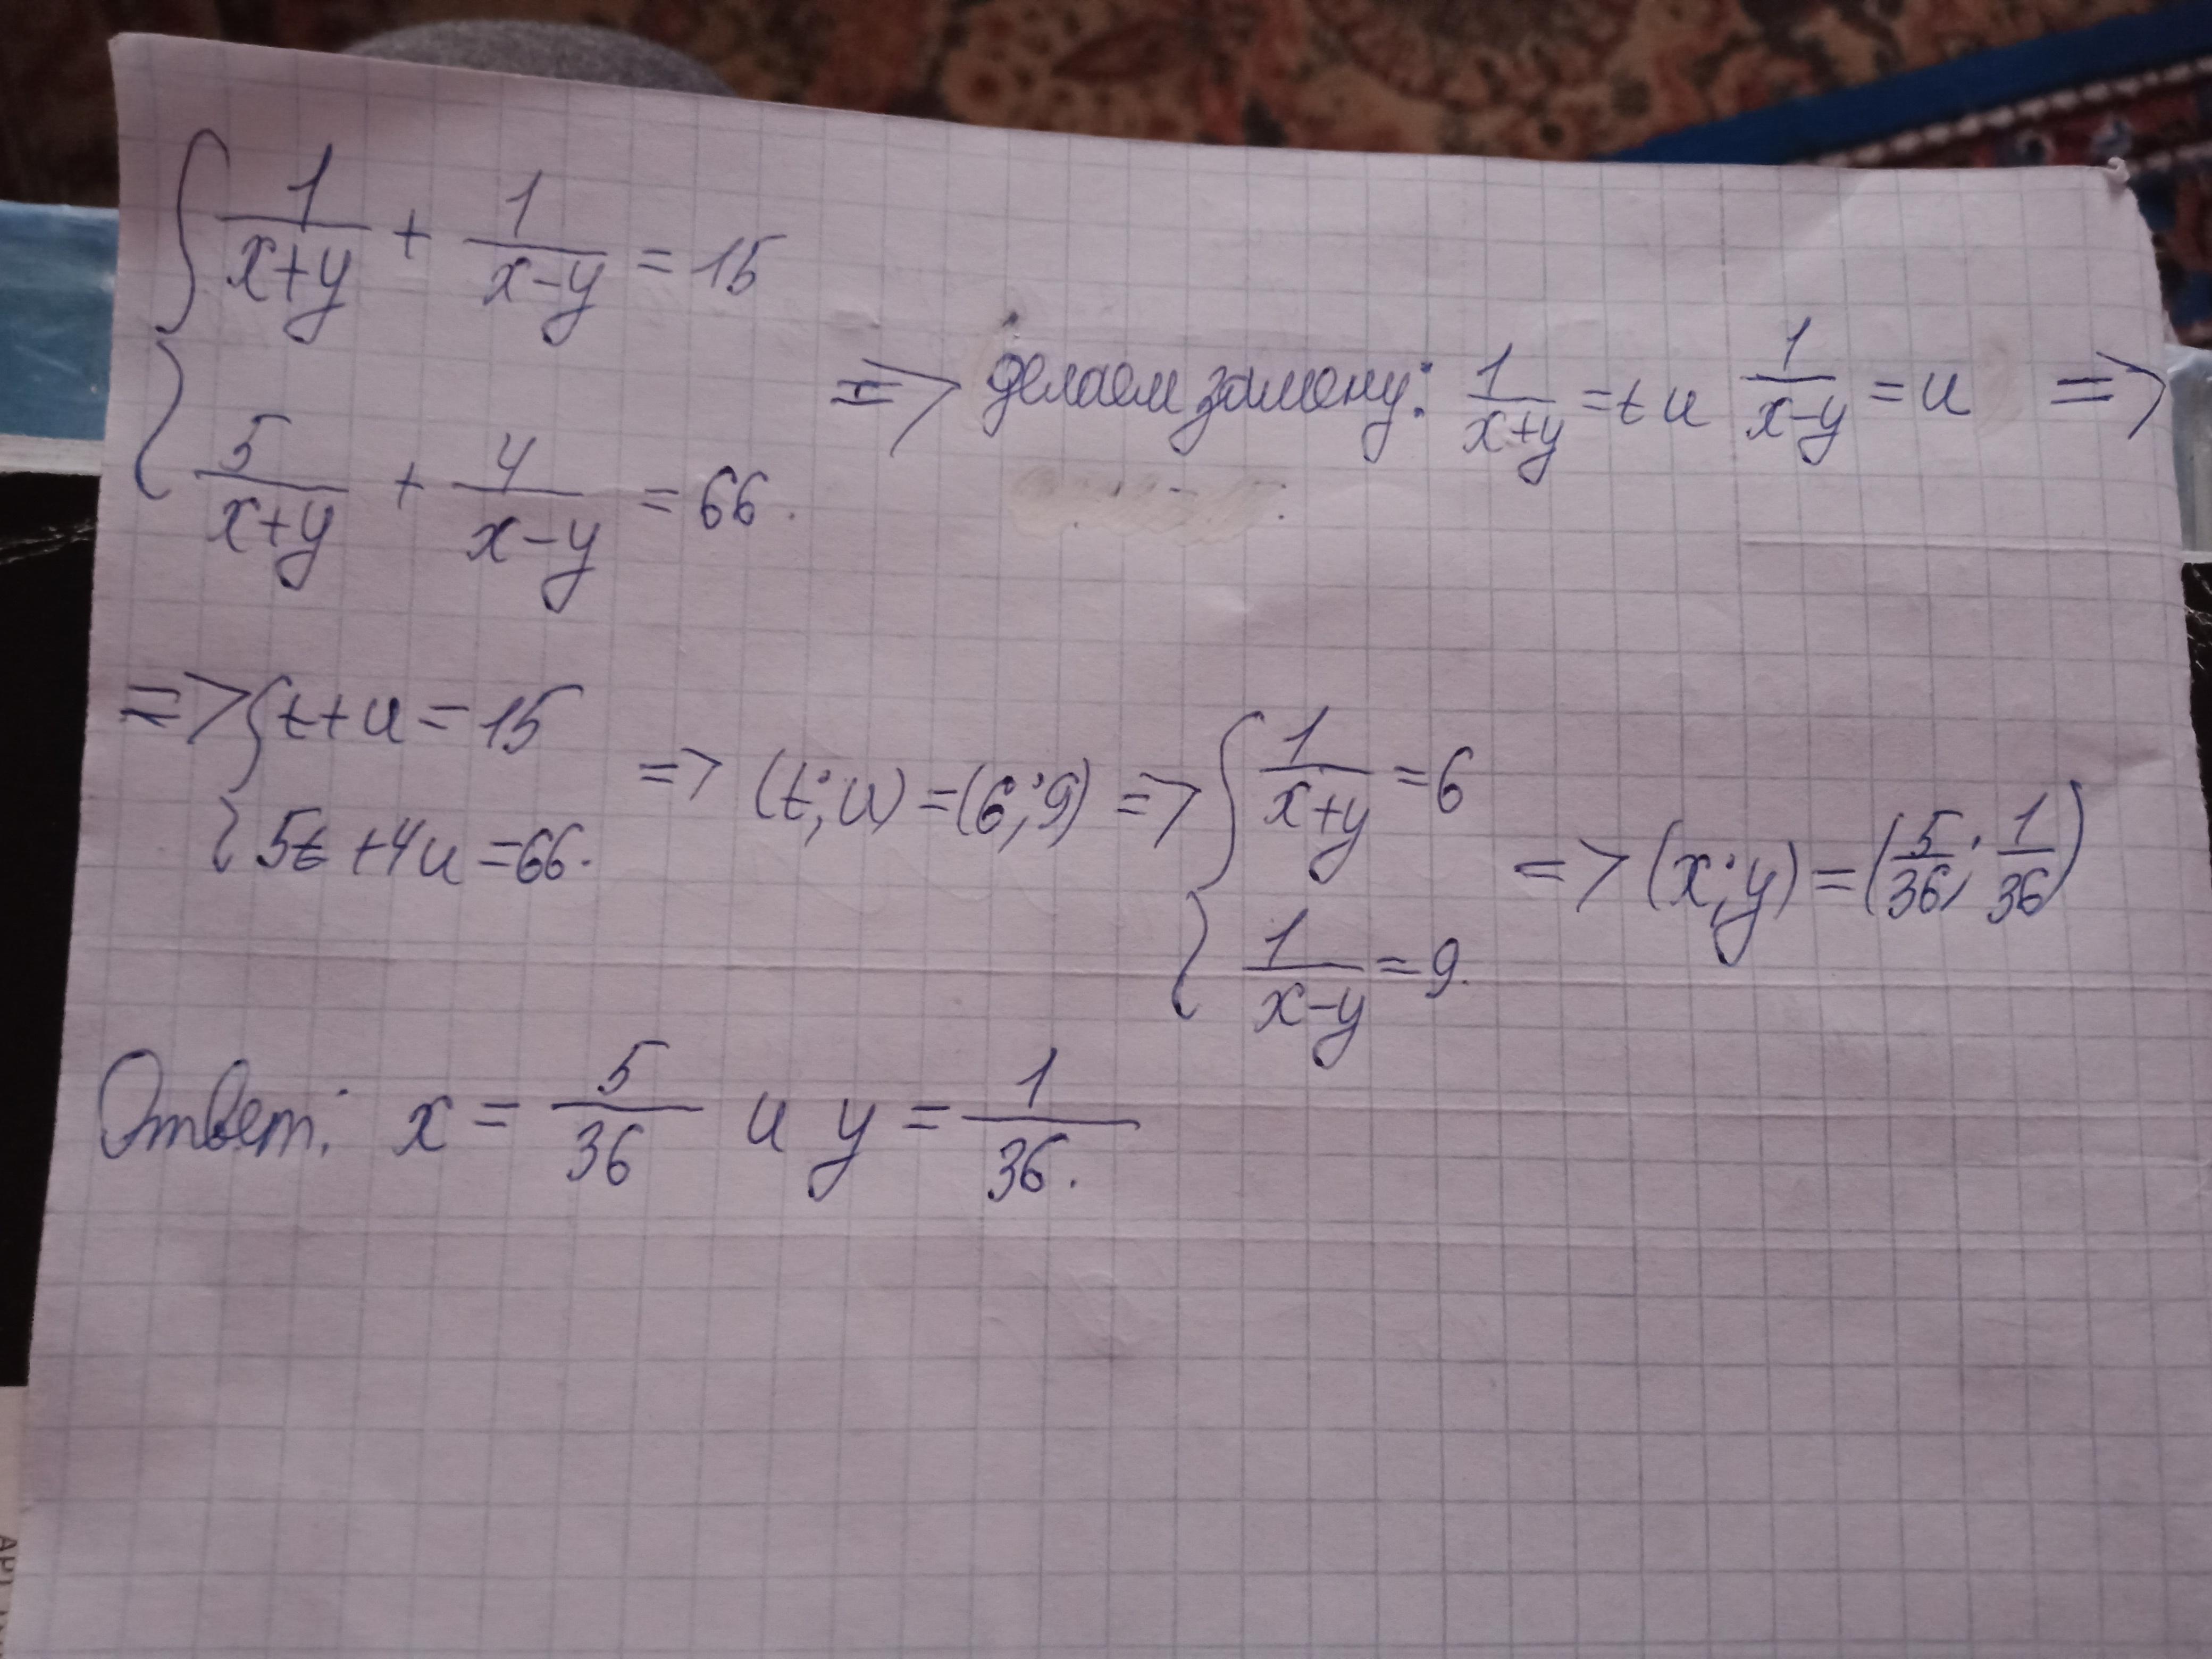 { 1/(x+y) + 1/(x-y) = 15
{ 5/(x+y) + 4/(x-y) = 66.
=> делаем замену: 1/(x+y) = t и 1/(x-y) = u =>
=> { t+u = 15
{ 5t+4u = 66.
=> (t;u) = (6;9) => { 1/(x+y) = 6
{ 1/(x-y) = 9.
=> (x;y) = (5/36; 1/36)
Ответ: x = 5/36 и y = 1/36.